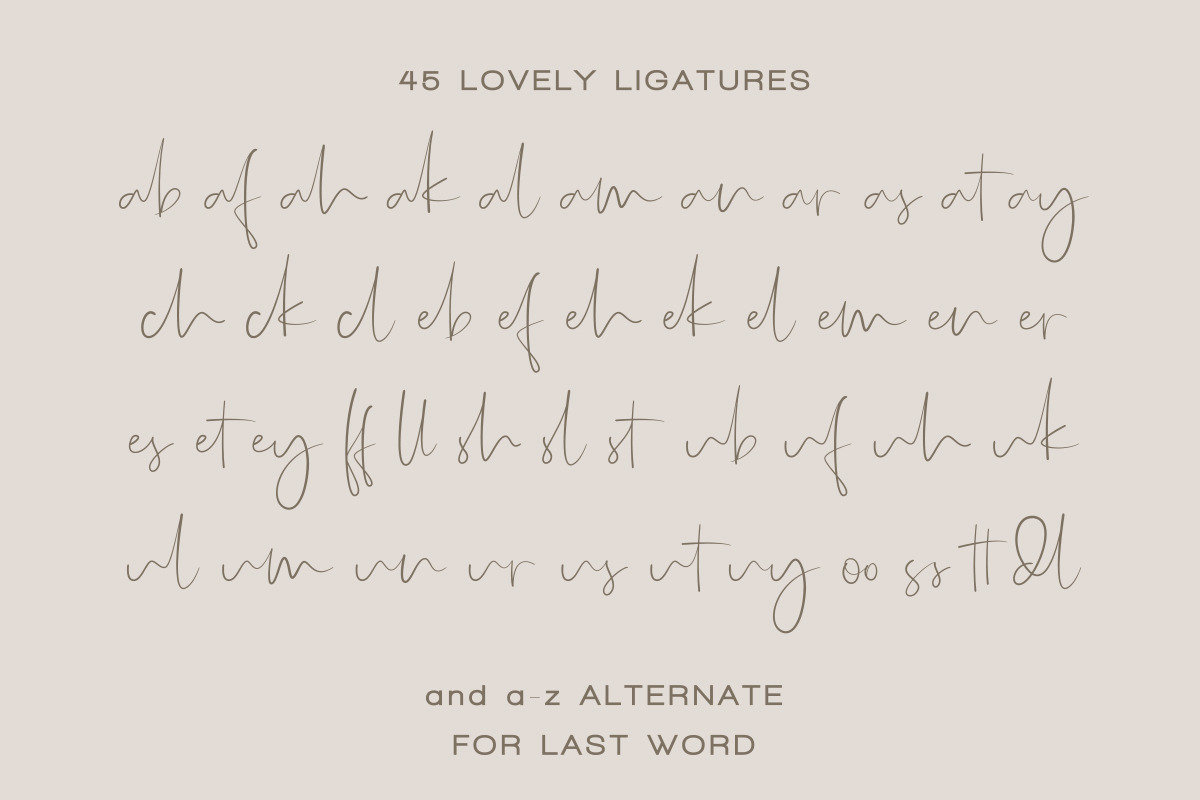 45 LOVELY LIGATURES
ab af ah ak al am an ar as at ay
ch ck cl eb ef eh ek el em en er
es et ey ff ll sh sl st ub uf uh uk
ul um un ur us ut uy oo ss tt
and a-z ALTERNATE
FOR LAST WORD